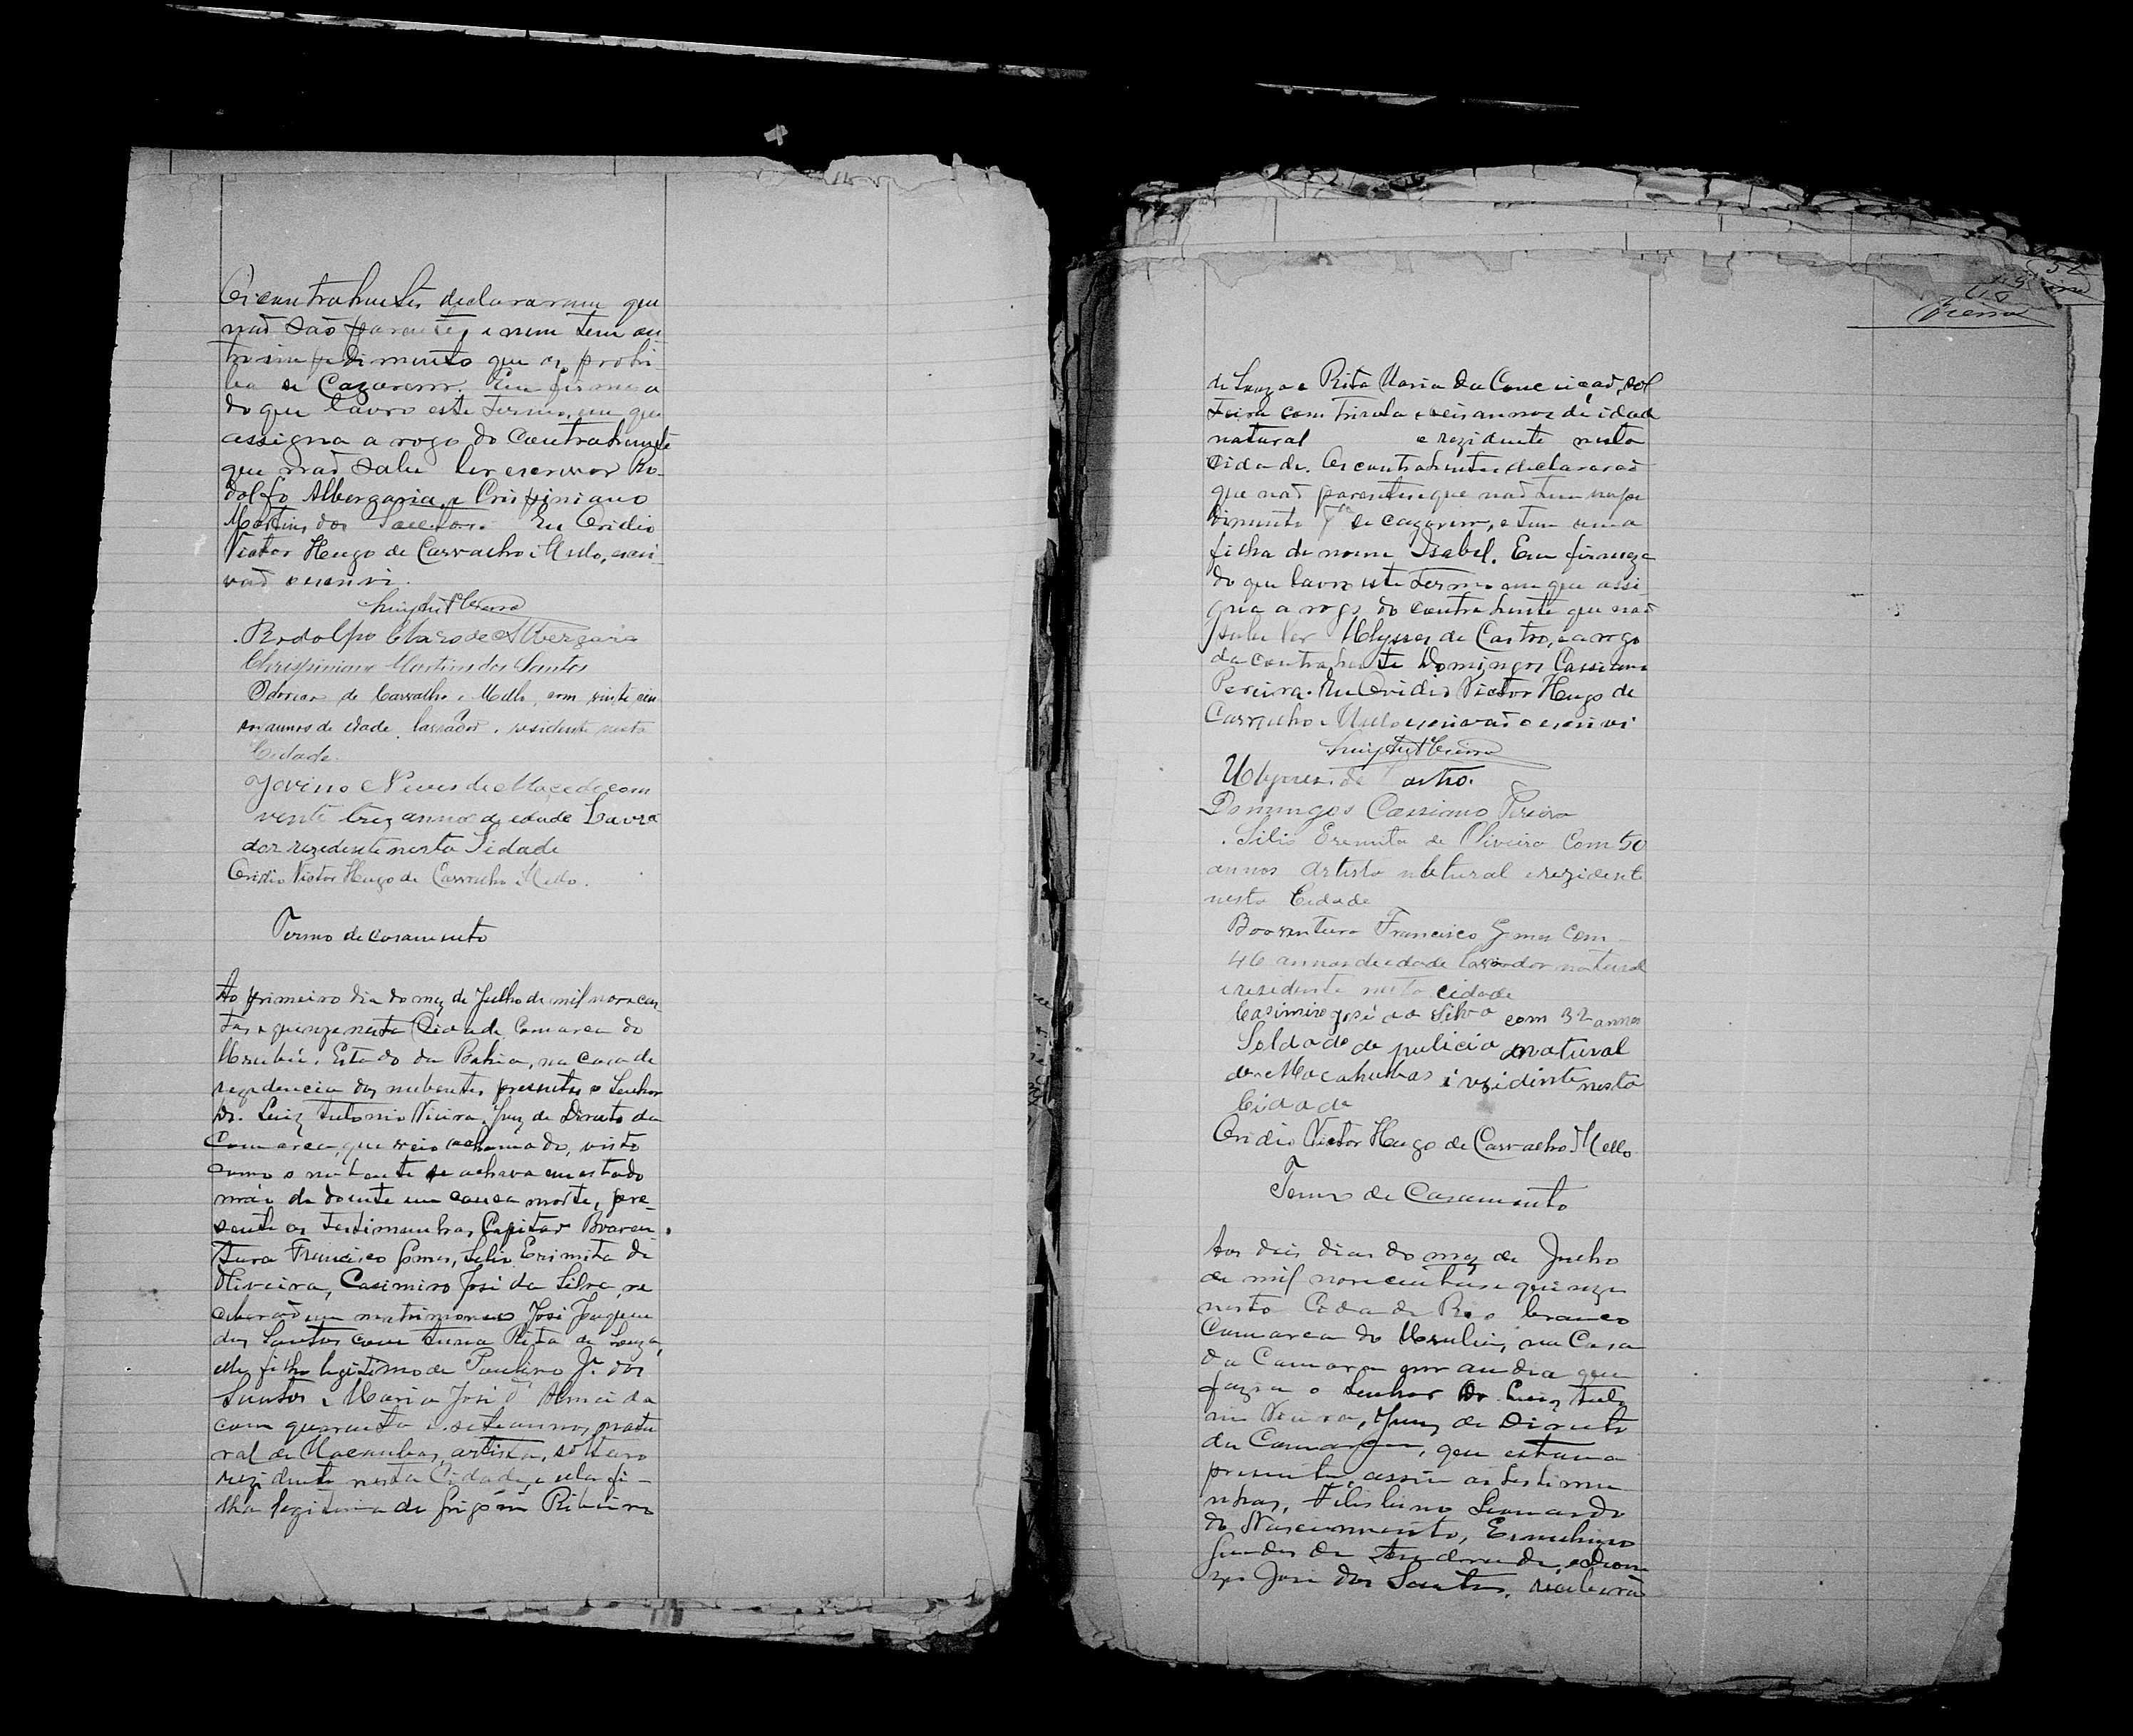 Os contrahentes declararam que
não são parentes, e nem tem ou
tro impedimento que os prohi-
ba se Cazarem. Em firmeza
do que lavro este termo, em que
assigna a rogo do Contrahente
que não sabe ler escrever Ro-
dolfo Albergaria, e Crispiniano
Martins dos Santos. Eu Ovidio
Victor Hugo de Carvalho e Mello, escri-
vão escrevi.
Rodolpho Claro de Albergaria
Chrispiniano Martins dos Santos
de Carvalho e Mello, com vinte
annos de idade, lavrador, residente nesta
Cidade.
Jovino Neves de Macedo com
vente trez annos de edade Lavra
dor rezedente nesta Sidade
Ovidio Victor Hugo de Carvalho e Mello.
Termo de casamento
Ao primeiro dia do mez de Julho de mil novecen
tos e quinze nesta Cidade Comarca do
Urubú, Estado da Bahia, na casa de
rezidencia dos nubentes presentes o Senhor
Dr. Luiz Antonio Vieira, Juiz de Direito da
Comarca, que veio a chamado, visto
como o nubente se achava em estado
de doente em causa morte, pre-
sente as testimunhas Capitão Boaven-
tura Francisco Gomes, Silio Erimita de
Oliveira, Casimiro José da Silva, re
ceberão em matrimonio José Joaquim
dos Santos com Anna Rita de Souza,
elle filho legitimo de Paulino Je. dos
Santos e Maria José d'Almeida
com quarenta e sete annos, natu
ral de Macaubas, artista, solteiro
rezidente nesta Cidade, e ella fi-
lha legitima de Ribeiro
de Souza e Rita Maria da Conceição, sol
teira com trinta e seis annos de idade
natural e rezidente nesta
Cidade. Os contrahentes declararão
que não parentes e que não tem impe
dimento pa se cazarem, e tem uma
filha de nome Isabel. Em firmeza
do que lavro este termo em que assi
gna a rogo do contrahente que não
sabe ler Ulysses de Castro, e a rogo
da contrahente Domingos Cassiano
Pereira. Eu Ovidio Victor Hugo de
Carvalho e Mello escrivão o escrevi
Ulysses de Castro.
Domingos Cassiano Pereira
Silio Eremita de Oliveira Com 50
annos Artista natural e rezidente
nesta Cidade
Boaventura Francisco Gomes Com
46 annos de edade lavrador natural
e residente nesta cidade
Casimiro José da Silva com 32 annos
Soldado de pulicia natural
de Macahubas i rezidinte nesta
Cidade
Ovidio Victor Hugo de Carvalho e Mello
Termo de Casamento
Aos dois dias do mez de Julho
de mil novecentos e quinze
nesta Cidade Rio branco
Comarca do Urubú, na Casa
da Camara em audiencia que
fazia o Senhor Dr. Luiz Anto
nio Vieira, Juiz de Direito
da Comarca, que estava
presente, assim as testimu
nhas, Leonardo
do Nascimento,
José dos Santos, receberão